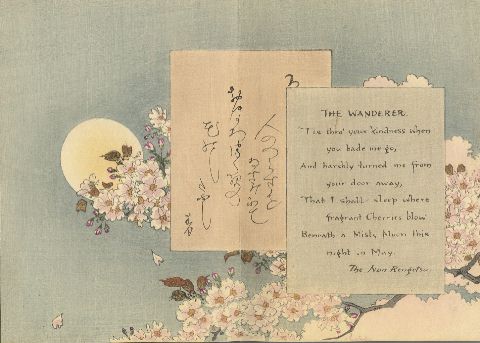 人のつらさを
なさけにて
THE WANDERER.
"'Tis thro' your kindness when
you bade me go,
And harshly turned me from
your door away,
That I shall sleep where
fragrant Cherries blow
Beneath a Misty Moon this
night in May.
The Nun Rengetsu.